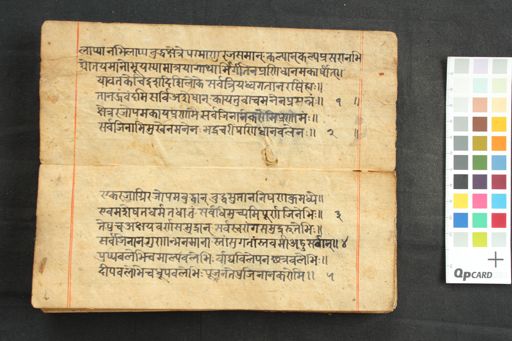 लाप्यानभिलाप्य बुद्धक्षेत्रे परमाणु रजःसमान् कल्पान् कल्पप्रसरानभि
द्योतयमानो भूयस्या मात्रया गाथाभिर्गीतेन प्रणिधानमकार्षीत्॥
यावत केचिद्दशद्दिशि लोके सर्वत्रियध्वगता नरसिंहाः
तानहं वंदमि सर्वि अशेषान् कायतु वाच मनेन प्रसन्नः॥ १ ॥
क्षेत्ररजोपमकायप्रणामैः सर्वजिनान करोमि प्रणामं॥
सर्वजिनाभिमुखेन मनेन भद्रचरीप्रणिधानबलेन॥ २ ॥
एकरजाग्रि रजोपमबुद्धान् बुद्धसुतान निषण्णकु मध्ये॥
एवमशेषत धर्मतधातुं सर्वधिमुच्यमि पूर्ण जिनेभिः॥ ३
तेषु च अक्षयवर्णसमुद्रान् सर्वस्वरांगसमुद्ररुतेभिः॥
सर्वजिनान गुणान् भनमाना स्तांसुगतांस्तवमी अहु सर्वान्॥ ४
पुष्पवरेभि च माल्यवरेभि वाद्यविलेपन छत्रवरेभिः॥
दीपवरेभि च धूपवरेभिः पूजन तेषु जिनान करोमि॥ ५
QPCARD